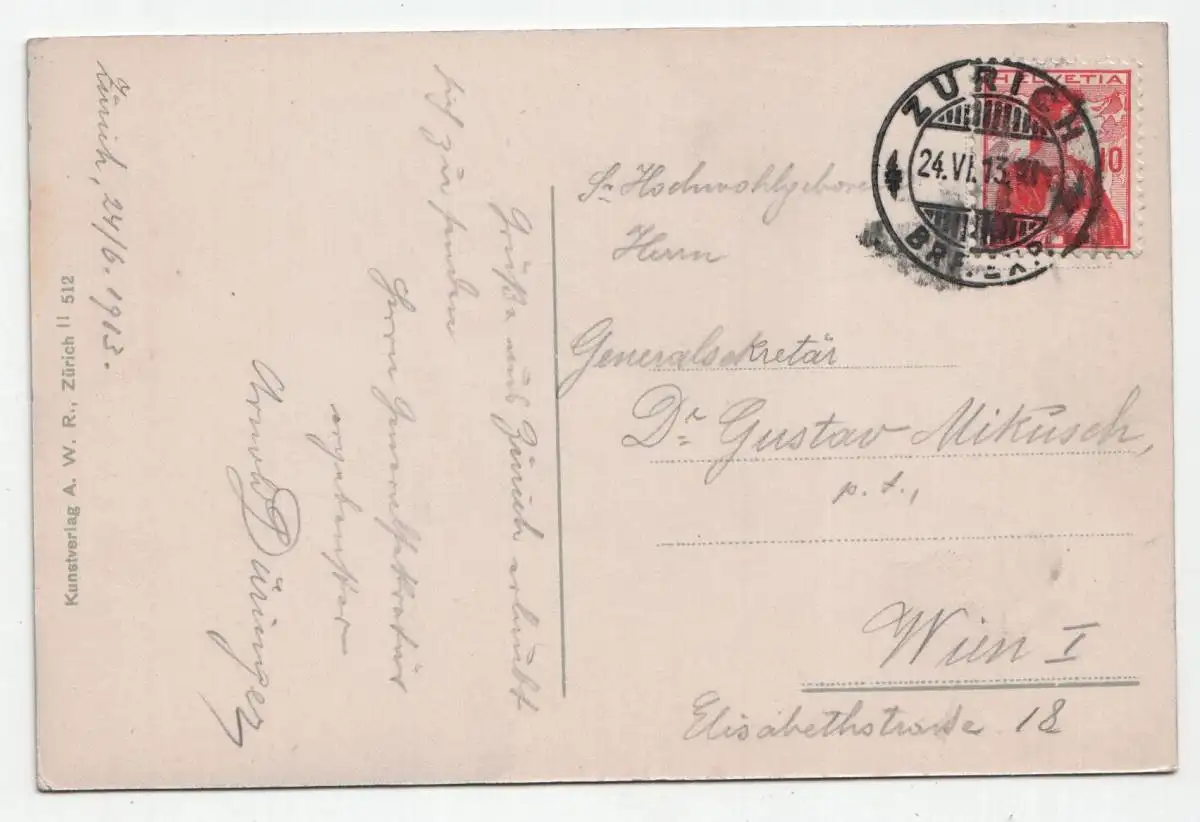 Zürich, 24/6. 1913.
Grüße aus Zürich erlaubt
sich zu senden
Herrn Generalsekretär
ergebenster
Arnold Düringer
Kunstverlag A. W. R., Zürich II 512
HELVETIA
10
ZÜRICH
24.VI.13.
BRF. EXP.
Sr Hochwohlgeboren
Herrn
Generalsekretär
Dr. Gustav Mikusch,
p. t.,
Wien I
Elisabethstrasse 18